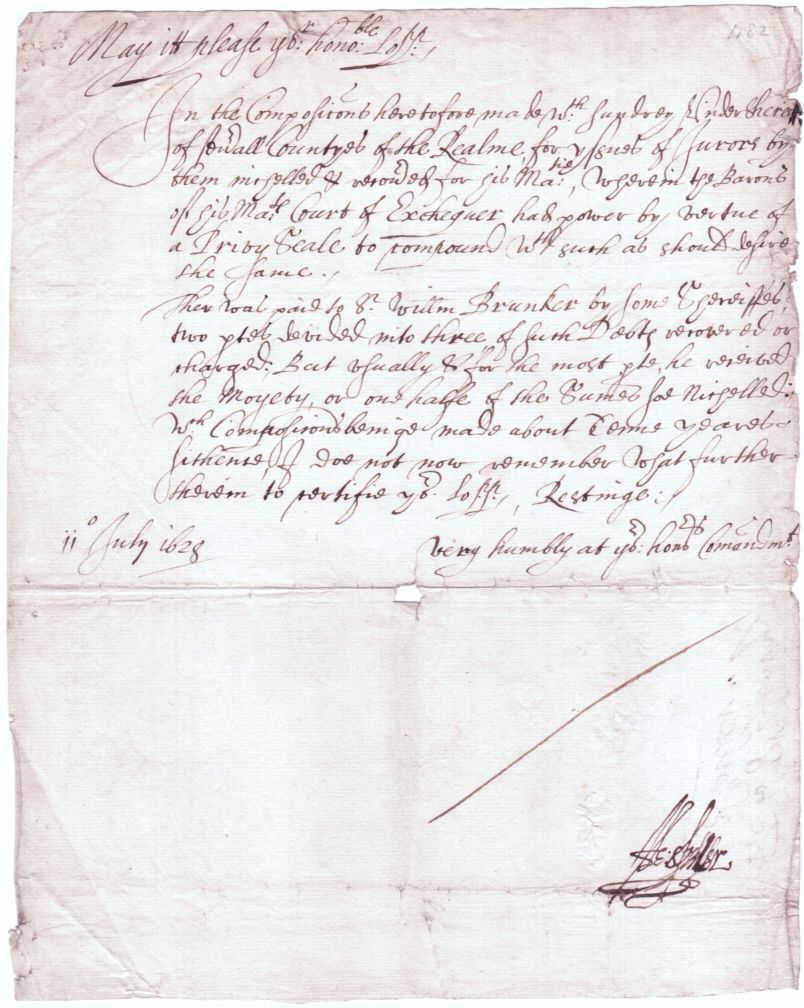 May itt please yor: honoble: Lopp:,
In the Composicons heretofore made wth: sundrey Undersherer
of sevrall Countyes of the Realme, for yssues of Jurors by
them nichelled & recorded for his Matie:, wherein the Barons
of his Mats: Court of Exchequer had power by vertue of
a Privy Seale to compound wth such as should desire
the same.,
Ther was paid to Sr. Willm Brunker by some Shereiffes,
two ptes devided into three of such Debts recovered or
charged; But usually & for the most pte, he received
the Moyety, or one halfe of the Sumes soe Nichelled:
wth: Composicons beinge made about Tenne yeares
sithence, I doe not now remember what further
therein to certifie yor. Lopp:, Restinge:
11o July 1628
very humbly at yor: honors Comandmt: